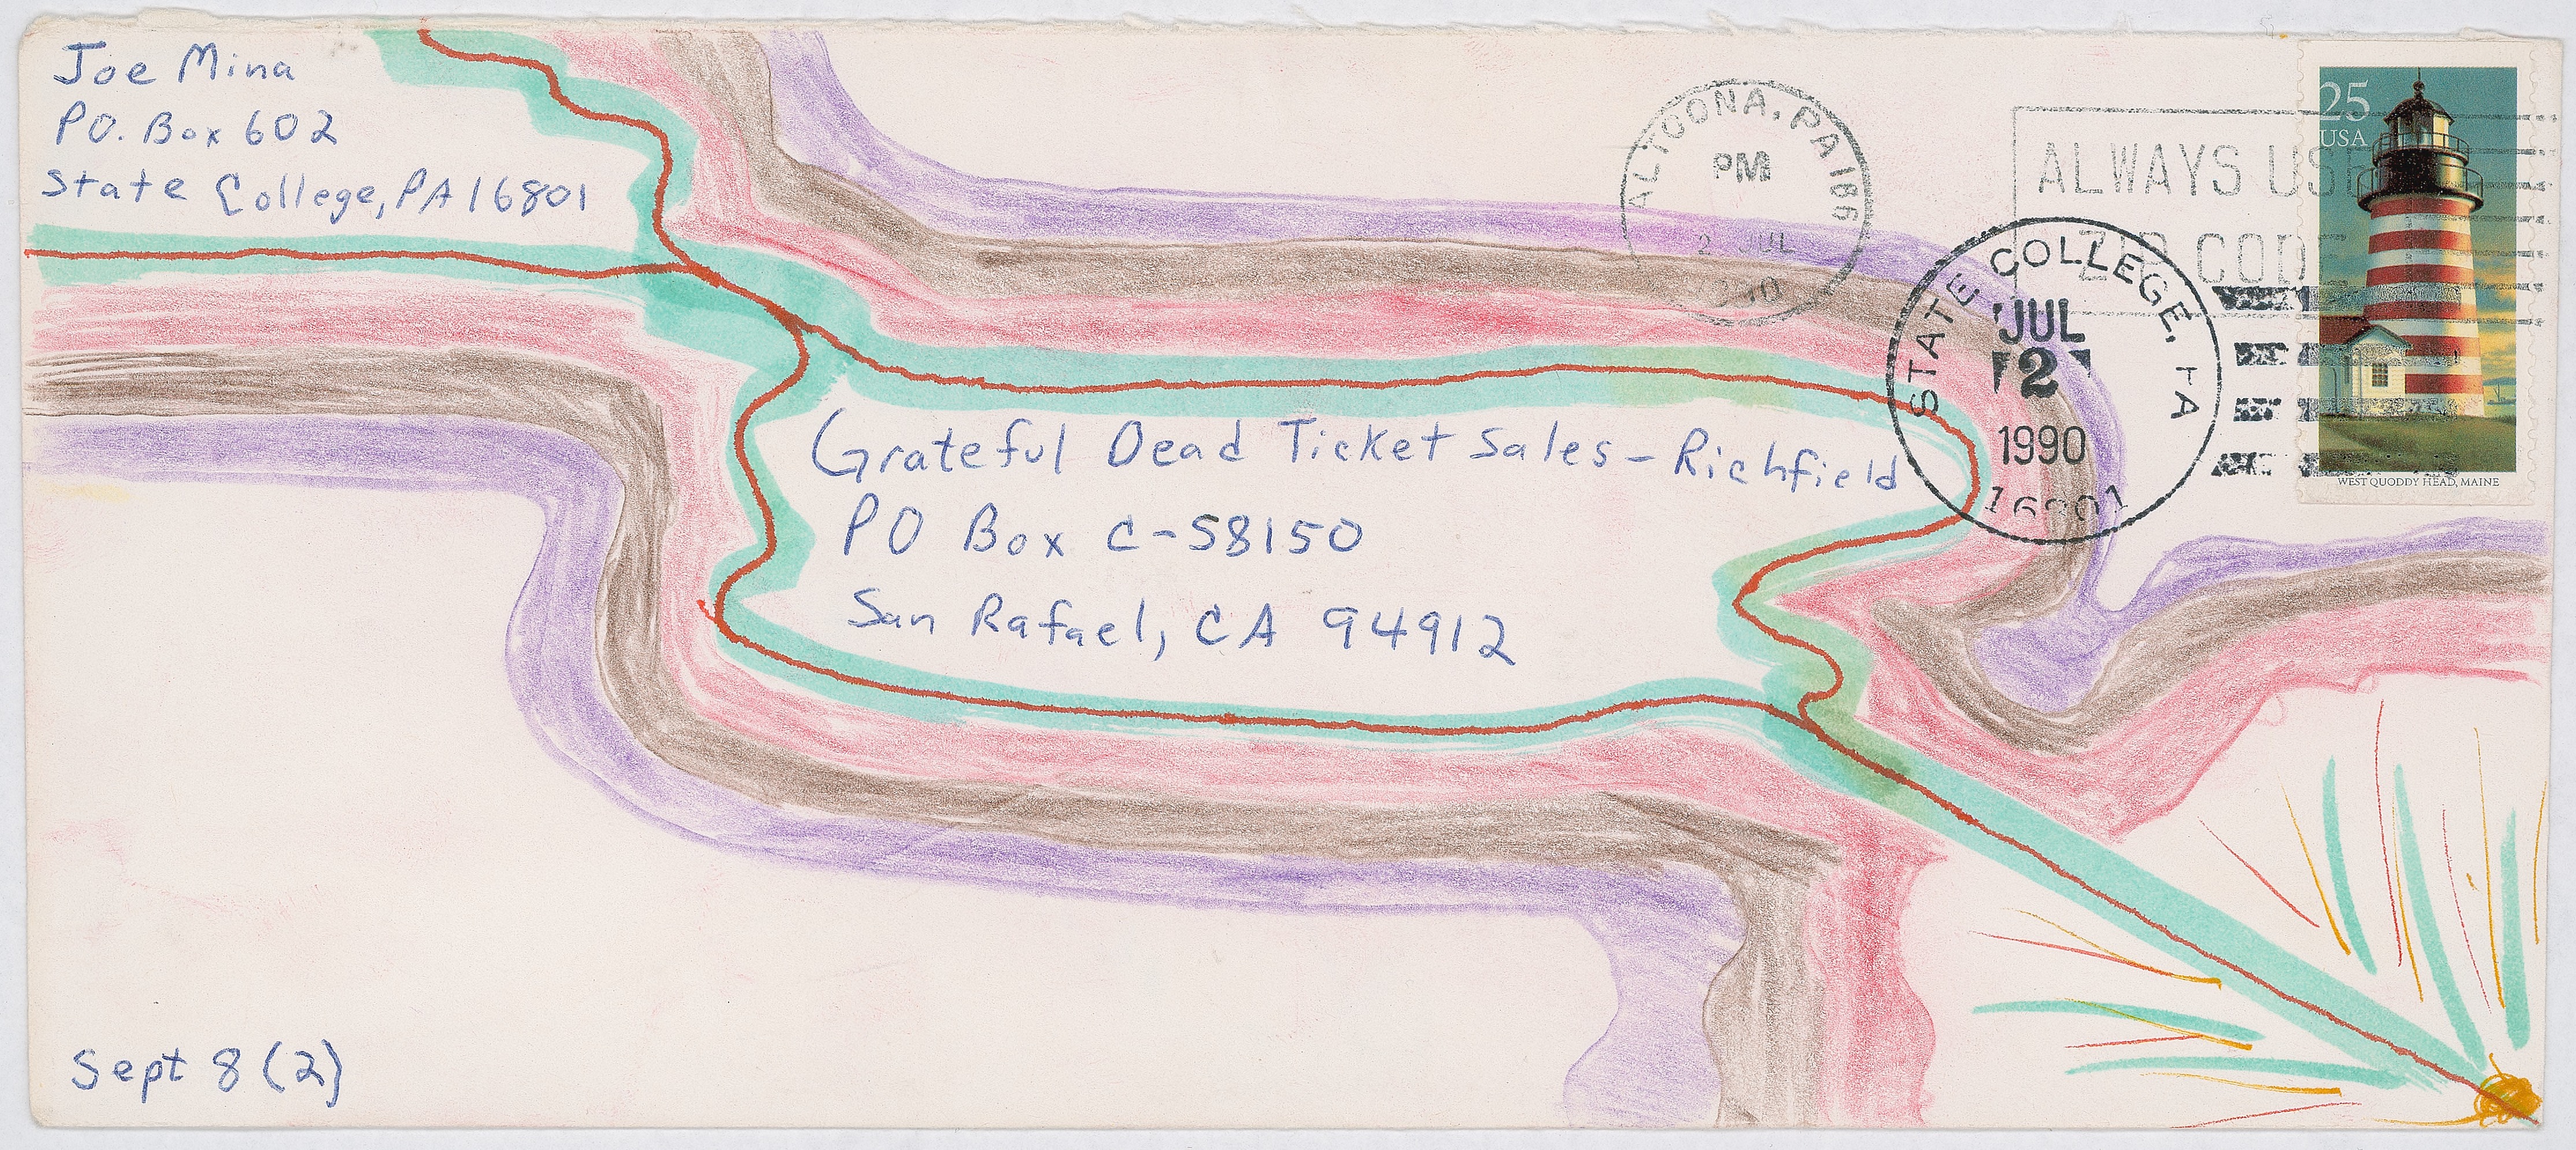 Joe Mina
PO. Box 602
State College, PA 16801
ALTOONA, PA 166
PM
2 JUL
ALWAYS USE
ZIP CODE
25
USA
WEST QUODDY HEAD, MAINE
STATE COLLEGE, PA
JUL
2
1990
16801
Grateful Dead Ticket Sales - Richfield
PO Box C-58150
San Rafael, CA 94912
Sept 8 (2)